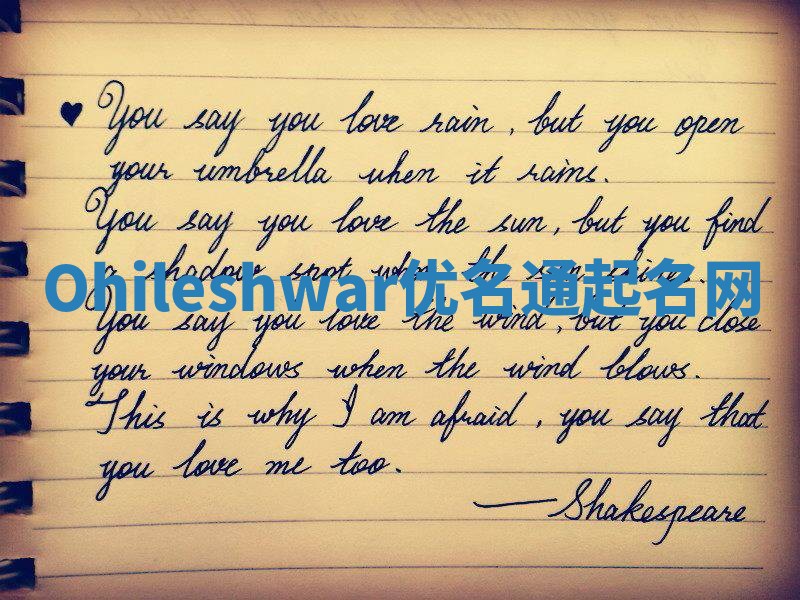 ♥ You say you love rain, but you open
your umbrella when it rains.
You say you love the sun, but you find
a shadow spot when the sun shines.
Ohileshwar优名通起名网
You say you love the wind, but you close
your windows when the wind blows.
This is why I am afraid, you say that
you love me too.
— Shakespeare